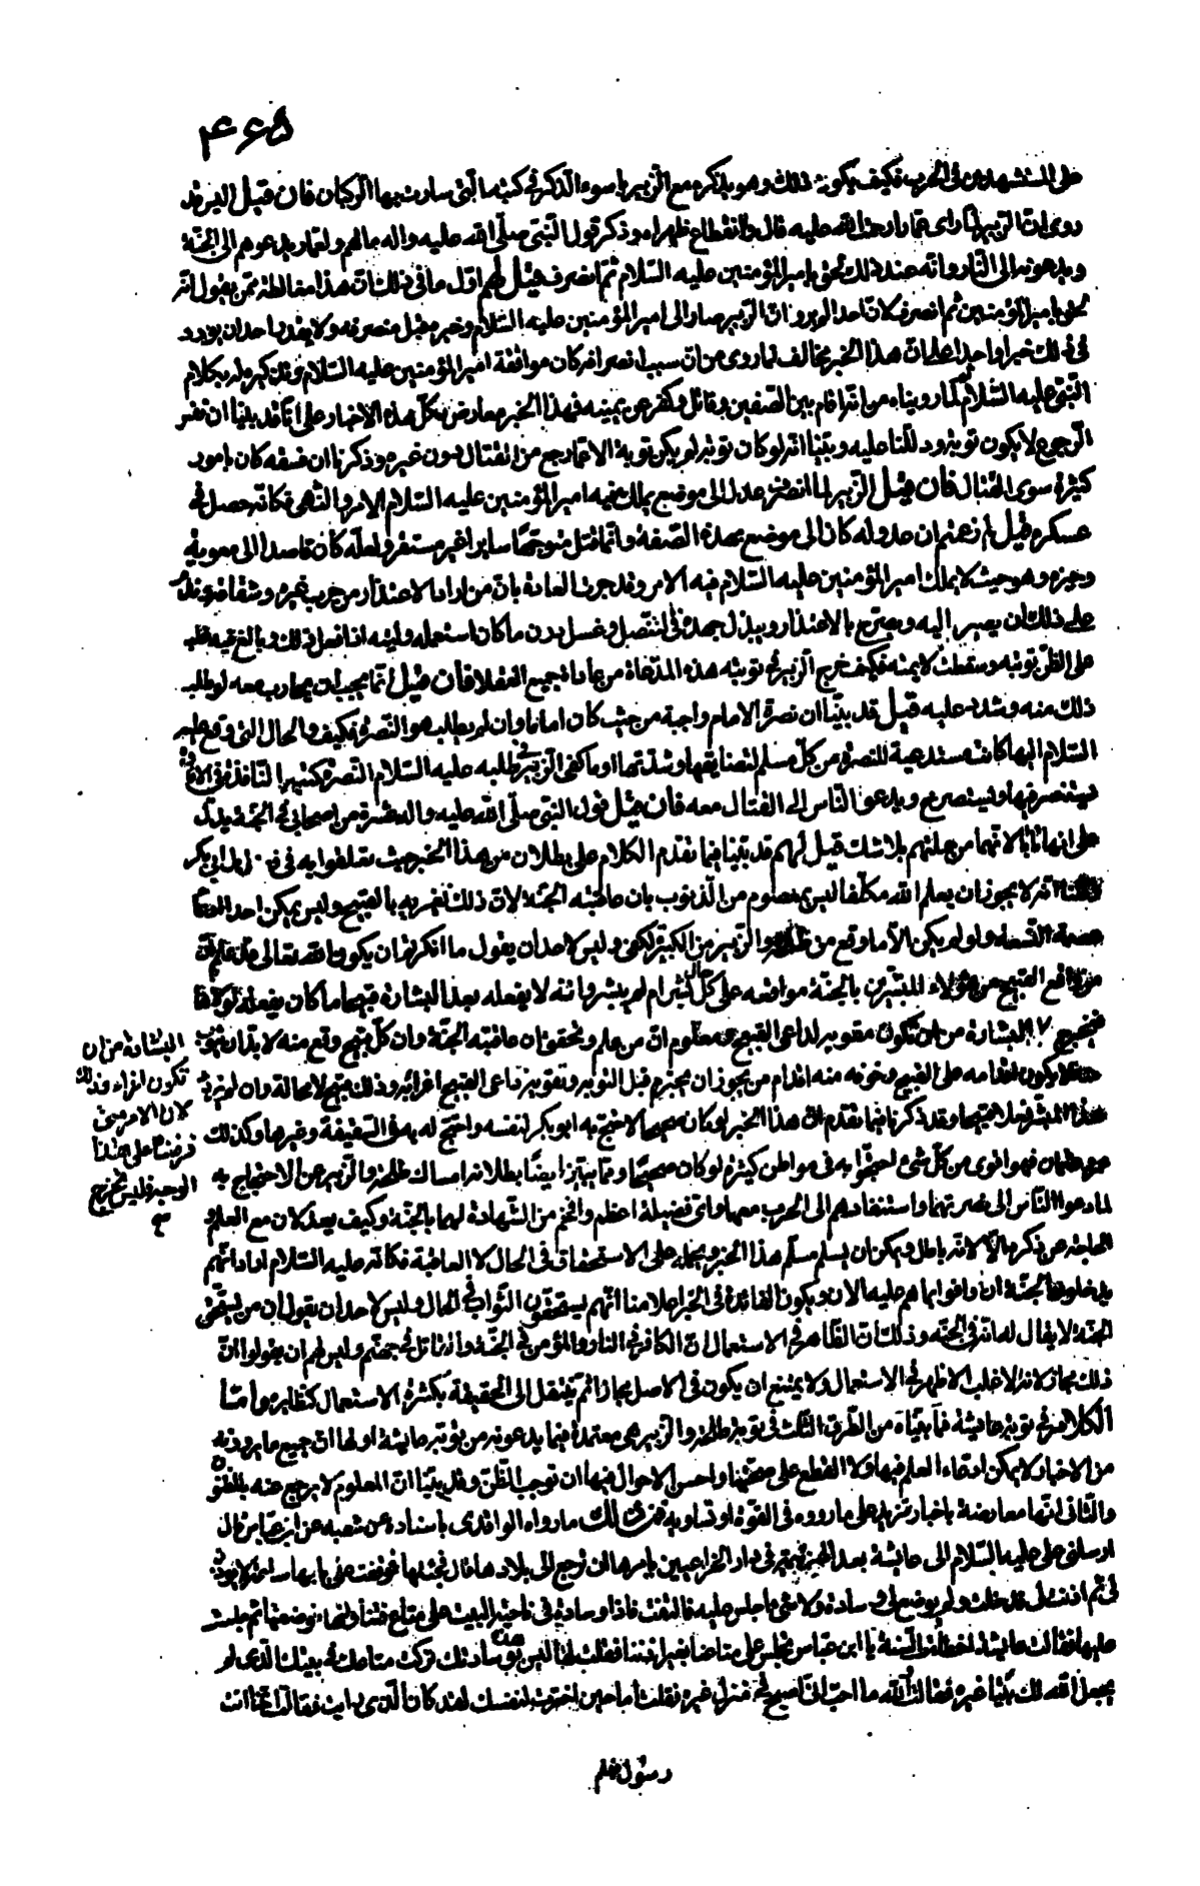 ۴۶۵
على المستشهدين في الحرب فكيف يكون ذلك وهو يذكره مع الزبير باسوء الذكر في كتبه التي سارت بها الركبان فان قيل اليس قد
روى ان الزبير لما راى عمارا رحمة الله عليه قال وانقطاع ظهراه وذكر قول النبي صلى الله عليه واله مالهم ولعمار يدعوهم الى الجنة
ويدعونه الى النار وانه عند ذلك لحق بامير المؤمنين عليه السلام ثم انصرف قيل لهم اول ما في ذلك ان هذا مغالطة ممن يقول انه
لحق بامير المؤمنين ثم انصرف لان احدا لم يرو ان الزبير صار الى امير المؤمنين عليه السلام وخبر مقبل منصرفه ولا يقدر احد ان يورد
في ذلك خبرا واحدا على ان هذا الخبر مخالف لما روى من ان سبب انصرافه كان موافقة امير المؤمنين عليه السلام وتذكيره له بكلام
النبي عليه السلام ولما رويناه من انه اقام بين الصفين وقاتل وكفر عن يمينه فهذا الخبر معارض بكل هذه الاخبار على انا قد بينا ان نفس
الرجوع لا يكون توبة ودللنا عليه وبينا انه لو كان توبة لم يكن توبة الا مما رجع من القتال دون غيره وذكرنا ان فسقه كان بامور
كثيرة سوى القتال فان قيل الزبير لما انصرف عدل الى موضع يملك فيه امير المؤمنين عليه السلام الامر والنهى فكانه حصل في
عسكره قيل لم زعمتم ان عدوله كان الى موضع بهذه الصفة وانما قتل متوجها سايرا غير مستقر ولعله كان قاصدا الى معوية
وحيزه وهو حيث لا يملك امير المؤمنين عليه السلام فيه الامر وقد جرت العادة بان من اراد الاعتذار من حرب غيره وشقاقه وقدر
على ذلك ان يصير اليه ويصرح بالاعتذار ويبذل جهده في التنصل وغسل درن ما كان استعمله وانه اذا فعل ذلك وبالغ فيه غلب
على الظن توبته وسقطت لائمته فكيف خرج الزبير في توبته هذه المدعاة من عادة جميع العقلا فان قيل انما يجب ان يحارب معه لو طلب
ذلك منه وشدد عليه قيل قد بينا ان نصرة الامام واجبة من حيث كان اماما وان لم يطلب هو النصرة فكيف والحال التي وقع عليه
السلام اليها كانت مستدعية للنصرة من كل مسلم لتضايقها وشدتها او ما كفى الزبير في طلبه عليه السلام النصرة كتبه النافذة في الافاق
يستنصر فيها ويستصرخ ويدعو الناس الى القتال معه فان قيل قول النبي صلى الله عليه واله عشرة من اصحابي في الجنة يدل
على انهما تابا لانهما من جملتهم بلا شك قيل لهم قد بينا فيما تقدم الكلام على بطلان من هذا الخبر حيث تعلقوا به في فضايل ابي بكر
وقلنا انه لا يجوز ان يعلم الله مكلفا ليس بمعصوم من الذنوب بان عاقبته الجنة لان ذلك تغريه بالقبيح وليس يمكن احد ادعاء
عصمة التسعة ولو لم يكن الا ما وقع من طلحة والزبير من الكبيرة لكفى وليس لاحد ان يقول ما انكرتم ان يكون الله تعالى علم ان
من واقع القبيح من هؤلاء المبشرين بالجنة مواقعه على كل حال بشر ام لم يبشر وانه لا يفعله بعد البشارة قبيحا ما كان يفعله لولاها
فيخرج البشارة من ان تكون مقوية لداعى القبيح معلوم ان من علم وتحقق ان عاقبته الجنة وان كل قبيح وقع منه لا بد ان يتوب
منه لا يكون اقدامه على القبيح وخوفه منه اقدام من يجوز ان يخترم قبل التوبة وتقوية دواعى القبيح اغراء وذلك قبيح لا محالة وان لم يزد
هذا المبشر فعلا قبيحا وقد ذكرنا فيما تقدم ان هذا الخبر لو كان صحيحا لاحتج به ابو بكر لنفسه واحتج له به في السقيفة وغيرها وكذلك
عمر وعثمان فهو اقوى من كل شئ احتجوا به في مواطن كثيرة لو كان صحيحا ومما يبين ايضا بطلانه امساك طلحة والزبير عن الاحتجاج به
لما دعوا الناس الى نصرتهما واستنفادهم الى الحرب معهما واى فضيلة اعظم وافخم من الشهادة لهما بالجنة وكيف يعدلان مع العلم و
الحاجة عن ذكره الا لانه باطل ويمكن ان يسلم مسلم هذا الخبر ويحمله على الاستحقاق في الحال لا العاقبة فكانه عليه السلام اراد انهم
يدخلون الجنة ان وافوا بما هم عليه الان ويكون الفائدة في الخبر اعلامنا انهم يستحقون الثواب في الحال وليس لاحد ان يقول ان من يستحق
الجنة لا يقال له انه في الجنة وذلك ان الظاهر في الاستعمال ان الكافر في النار والمؤمن في الجنة والقاتل في جهنم وليس لهم ان يقولوا ان
ذلك مجاز لانه الاغلب الاظهر في الاستعمال ولا يمتنع ان يكون في الاصل مجازا ثم ينتقل الى الحقيقة بكثرة الاستعمال كنظايره واما
الكلام في توبة عائشة فما بيناه من الطرق الثلث في توبة طلحة والزبير هي معتمدة فيما يدعونه من توبة عائشة اولها ان جميع ما يروونه
من الاخبار لا يمكن ادعاء العلم فيها ولا القطع على صحتها واحسن الاحوال فيها ان توجب الظن وقد بينا ان المعلوم لا يرجع عنه بالمظنون
والثاني انها معارضة باخبار تزيد على ما رووه في القوة او تساويه فمن ذلك ما رواه الواقدى باسناده عن شعبه عن ابن عباس قال
ارسلنى على عليه السلام الى عائشة بعد الهزيمة وهى في دار الخزاعيين يامرها ان ترجع الى بلادها قال فجئتها فوقفت على بابها ساعة لا يؤذن
لى ثم اذنت لى فدخلت ولم يوضع لى وسادة ولا شئ اجلس عليه فالتفت فاذا وسادة في ناحية البيت على متاع فتناولتها ووضعتها ثم جلست
عليها فقالت عائشة اخطأت السنة يا ابن عباس تجلس على متاعنا بغير اذننا فقلت لها ليس هذه وسادتك تركت متاعك في بيتك الذى لم
يجعل الله لك بيتا غيره فقالت والله ما احب انى اصبح في منزل غيره فقلت اما حين اخترت لنفسك لقد كان الذى رايت فقالت انما انت
البشارة من ان
تكون اغراء وذلك
لان الامر متى
فرضنا على هذا
الوجه فليس تخرج
رسول على